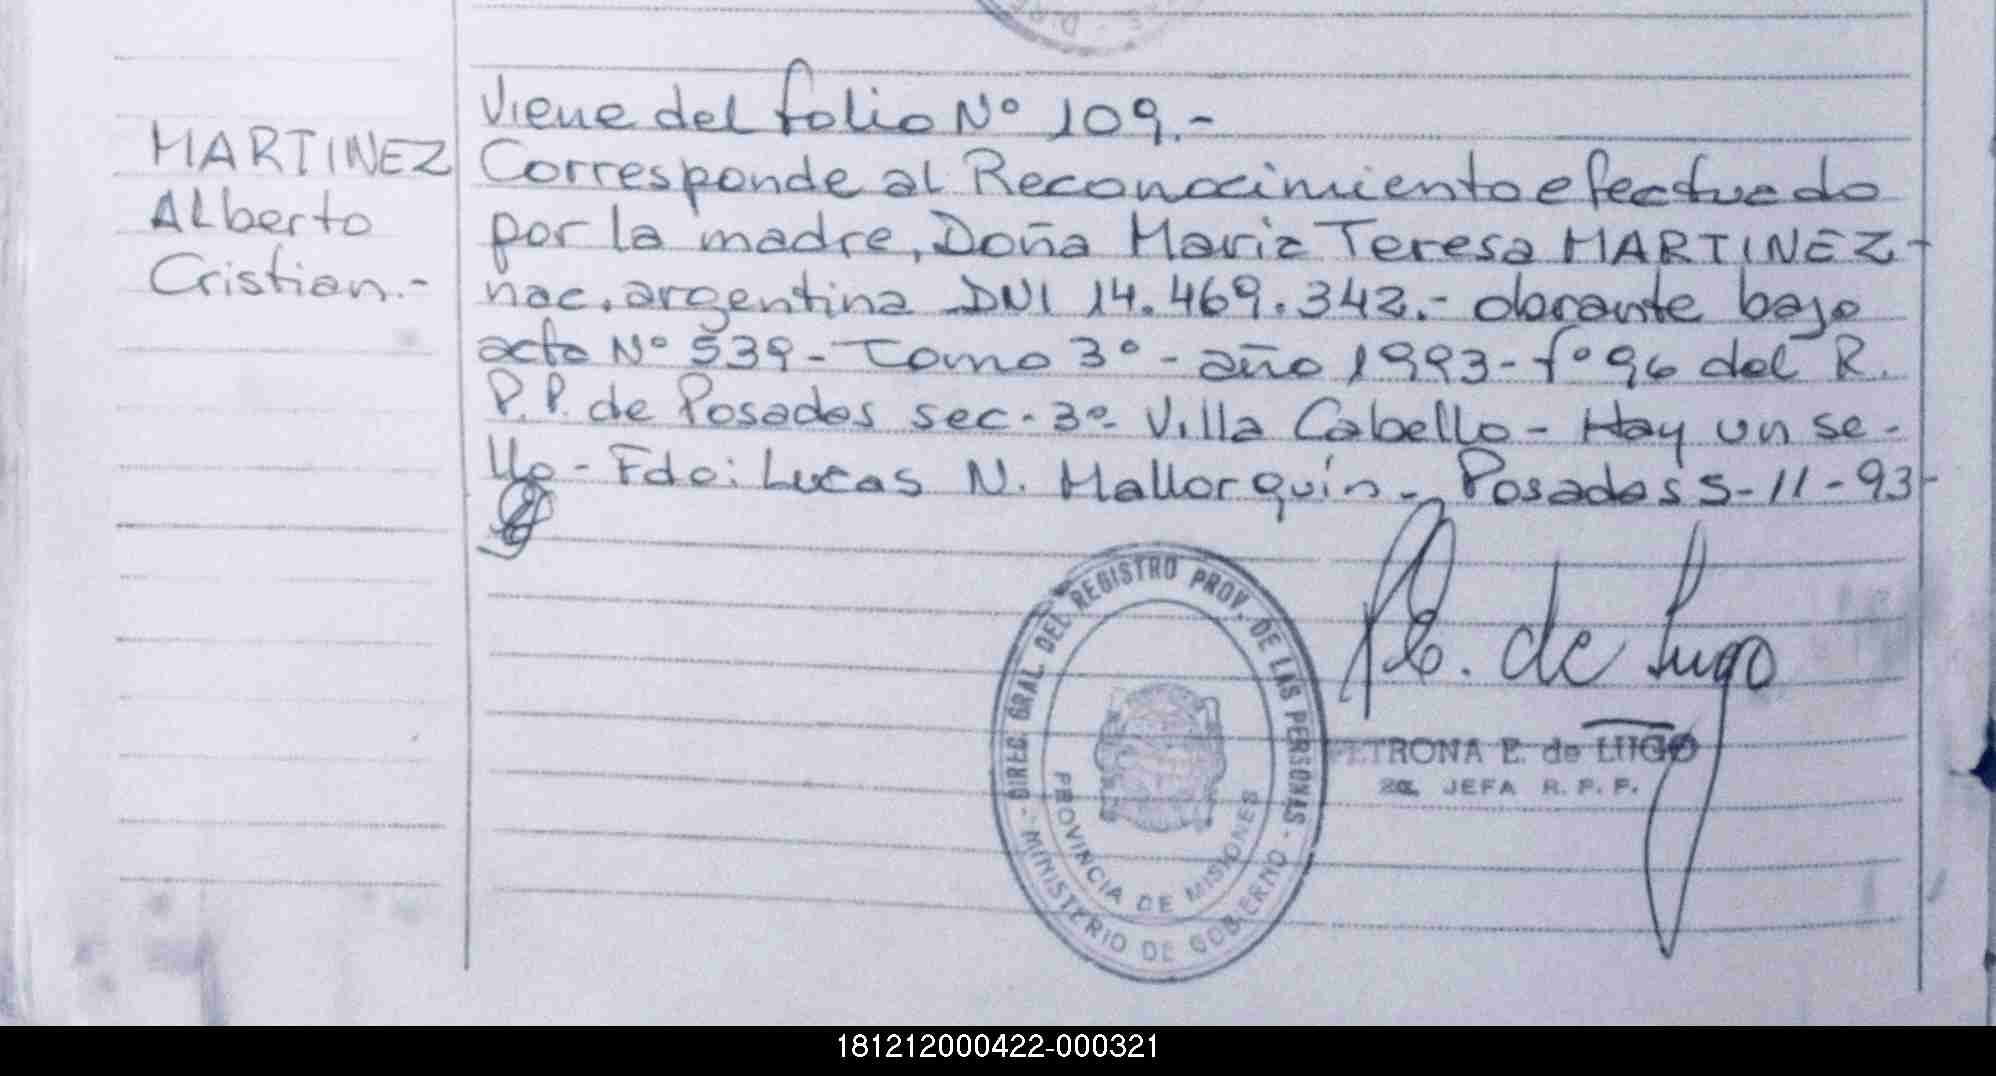 MARTINEZ
Alberto
Cristian.-
Viene del folio Nº 109.-
Corresponde al Reconocimiento efectuado
por la madre, Doña Maria Teresa MARTINEZ-
nac. argentina DNI 14.469.342.- obrante bajo
acta Nº 539- Tomo 3º - año 1993- fº 96 del R.
P.P. de Posadas sec. 3º Villa Cabello - Hay un se-
llo - Fdo: Lucas N. Mallorquín - Posadas 5-11-93-
DIREC. GRAL. DEL REGISTRO PROV. DE LAS PERSONAS
PROVINCIA DE MISIONES
MINISTERIO DE GOBIERNO
de Lugo
PETRONA E. de LUGO
2a. JEFA R. P. P.
181212000422-000321